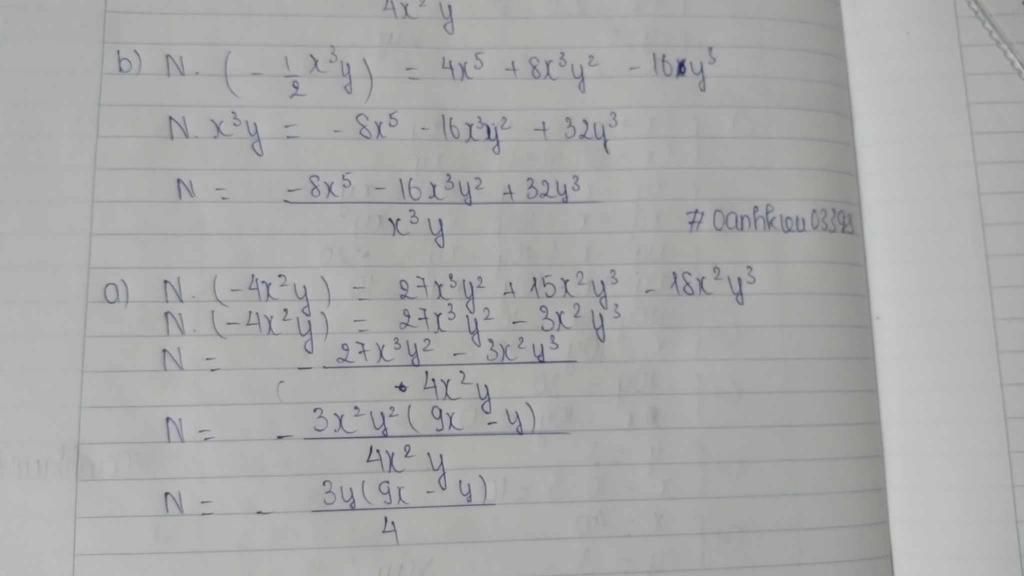 4x² y
b) N. (- 1/2 x³y) = 4x⁵ + 8x³y² - 16y³
N. x³y = - 8x⁵ - 16x³y² + 32y³
N = (- 8x⁵ - 16x³y² + 32y³) / (x³y)
a) N. (-4x²y) = 27x³y² + 15x²y³ - 18x²y³
N. (-4x²y) = 27x³y² - 3x²y³
N = - (27x³y² - 3x²y³) / (4x²y)
N = - (3x²y²(9x - y)) / (4x²y)
N = - (3y(9x - y)) / 4